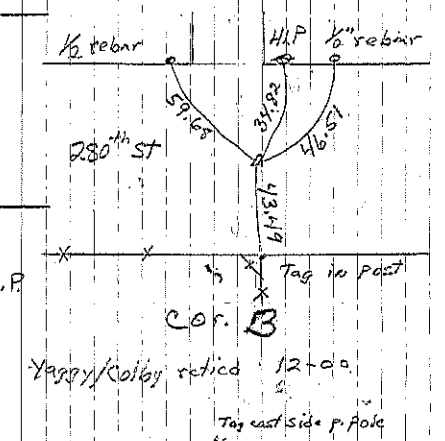 1/2 rebar H.P 1/2" rebar
59.68 34.92 46.51
280th St
43.49
Tag in Post
.P.
Cor. B
Yaggy/Colby 12-00
Tag east side p. pole